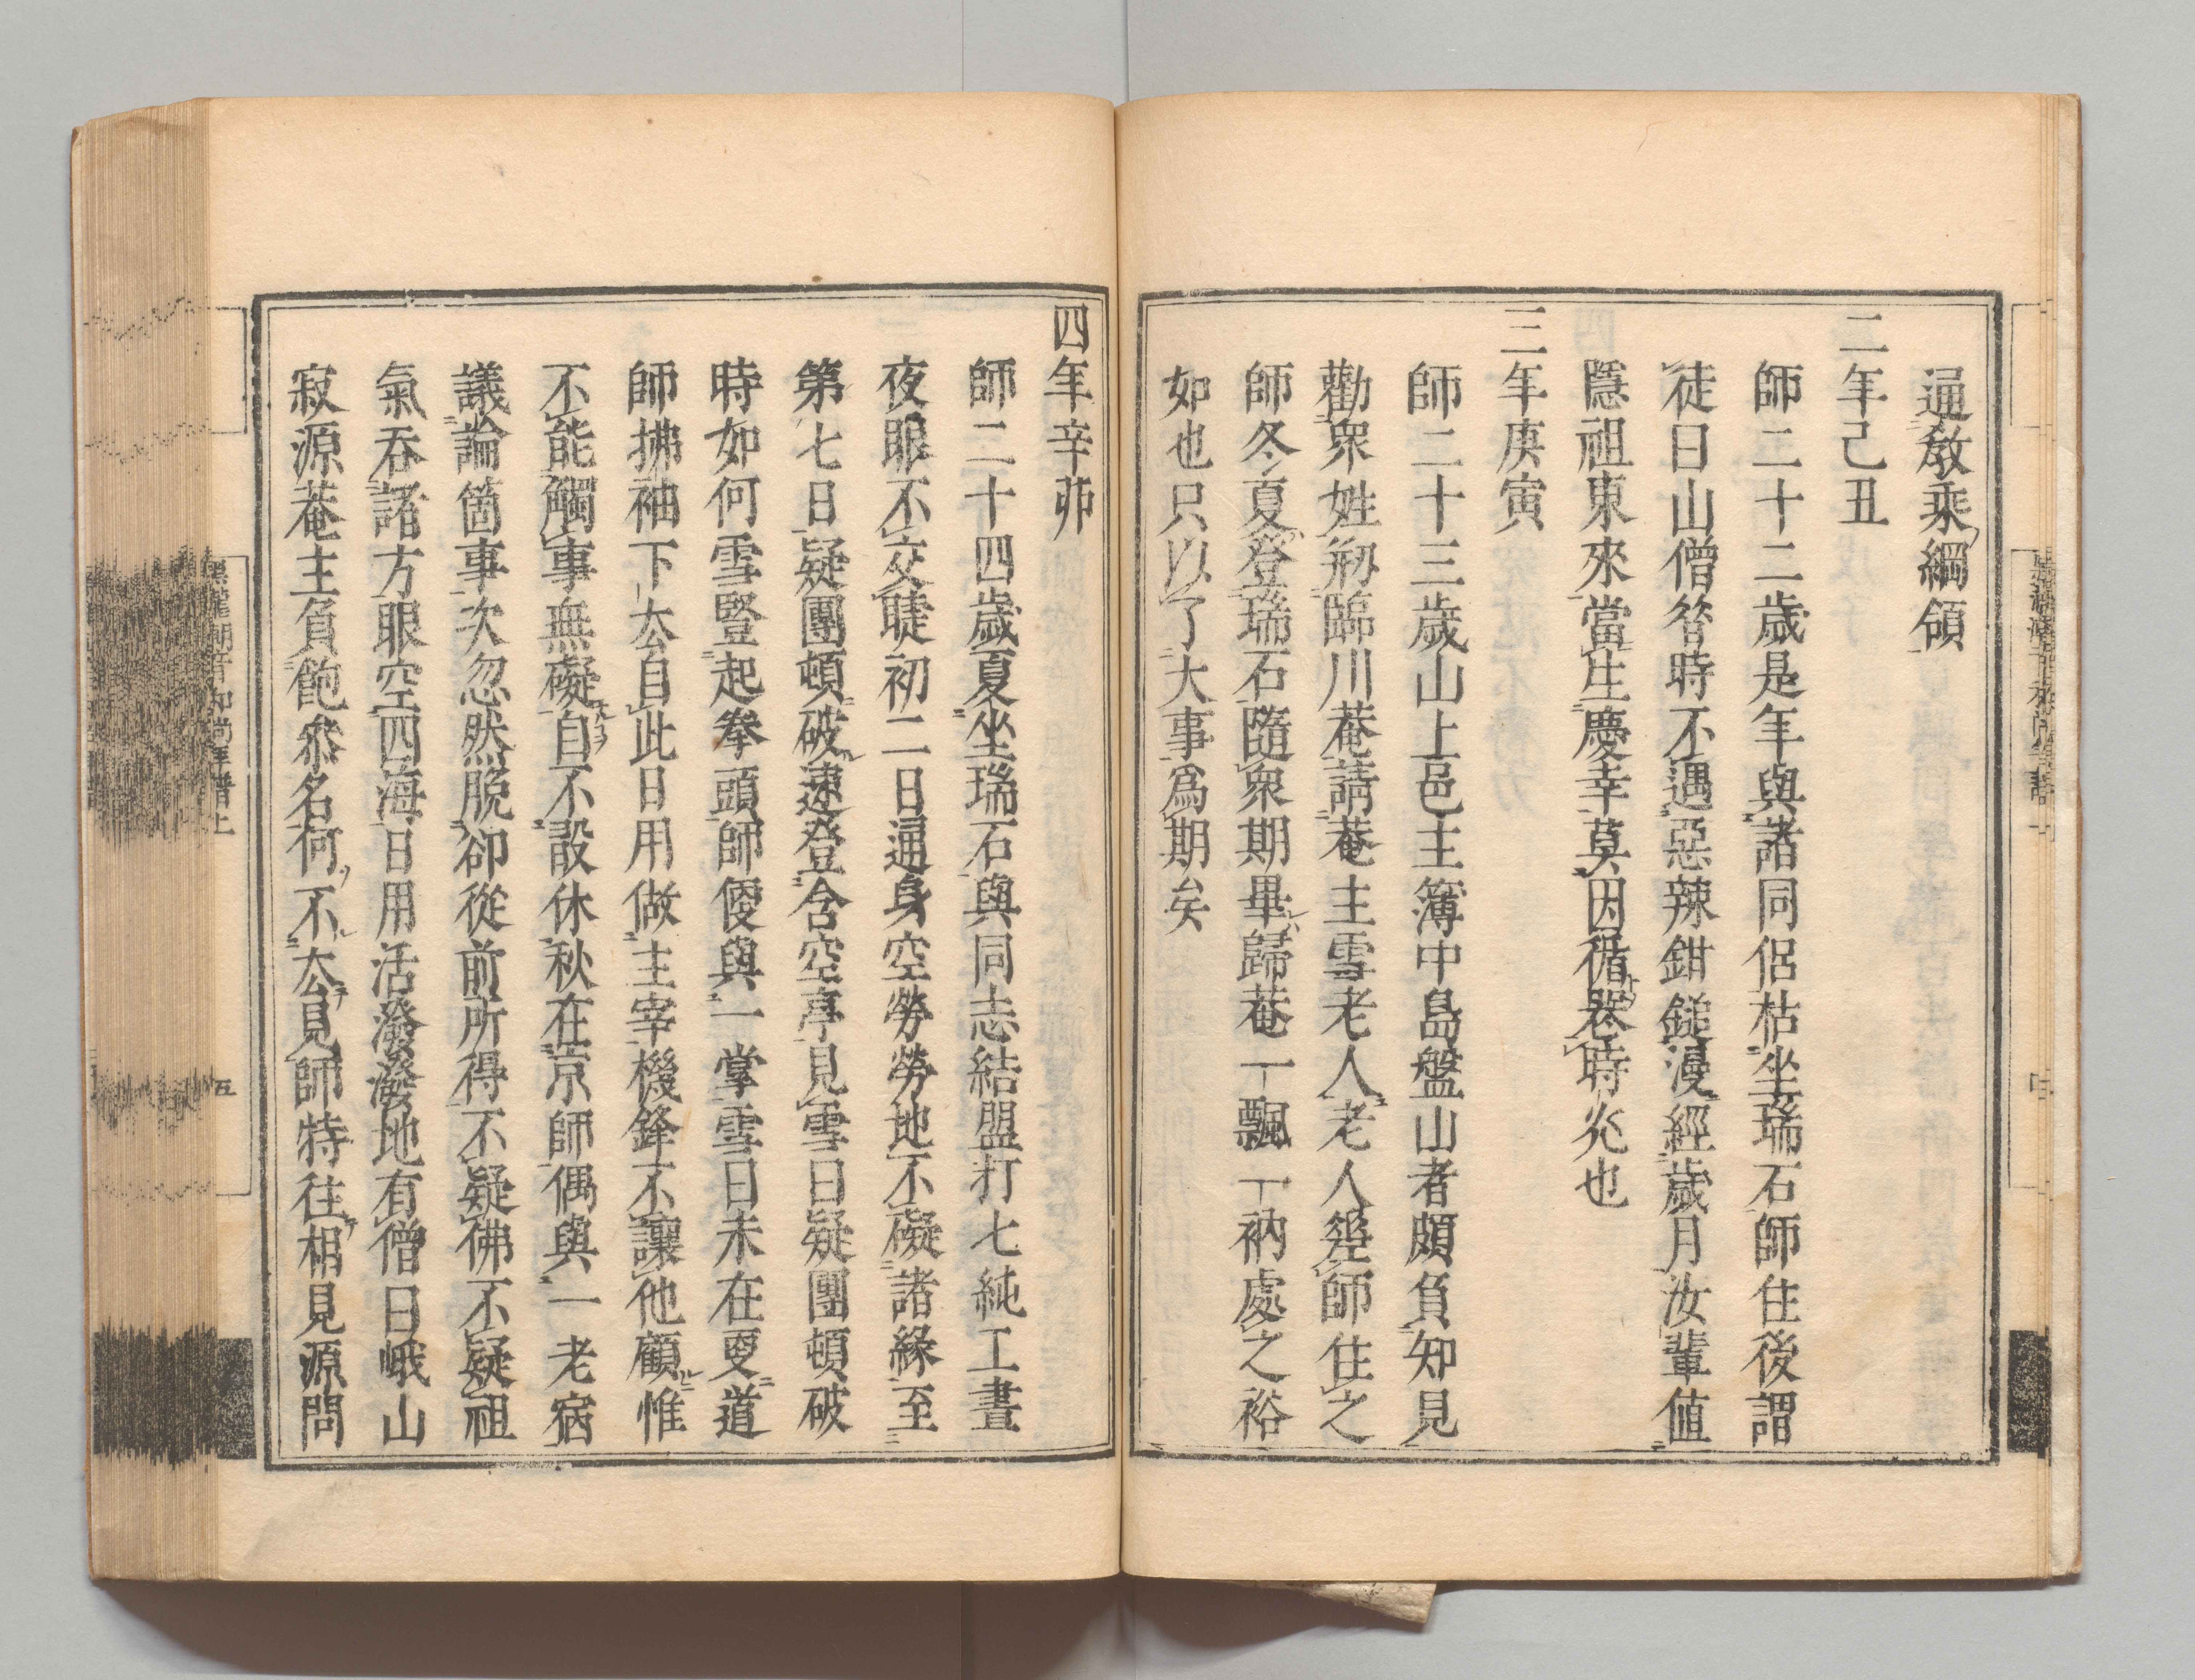 通敎乘綱領
二年己丑
師二十二歲是年與諸同侶枯坐瑞石師住後謂
徒曰山僧昝時不遇惡辣鉗鎚漫經歲月汝輩値
隱祖東來當生慶幸莫因循卷時炎也
三年庚寅
師二十三歲山上邑主簿中島盤山者頗負知見
勸衆姓剏臨川菴請菴主雪老人老人筵師住之
師冬夏登瑞石隨衆期畢歸菴一瓢一衲處之裕
如也只以了大事爲期矣
四年辛夘
師二十四歲夏坐瑞石與同志結盟打七純工晝
夜眼不交睫初二日通身空勞勞地不礙諸緣至
第七日疑團頓破速登含空亭見雪曰疑團頓破
時如何雪豎起拳頭師便與一掌雪曰未在更道
師拂袖下去自此日用做主宰機鋒不讓他顧惟
不能觸事無礙自不敢休秋在京師偶與一老宿
議論箇事次忽然脫卻從前所得不疑佛不疑祖
氣吞諸方眼空四海日用活潑潑地有僧曰峨山
寂源菴主負飽叅名何不去見師特往相見源問
黑瀧潮音和尚年譜上
五